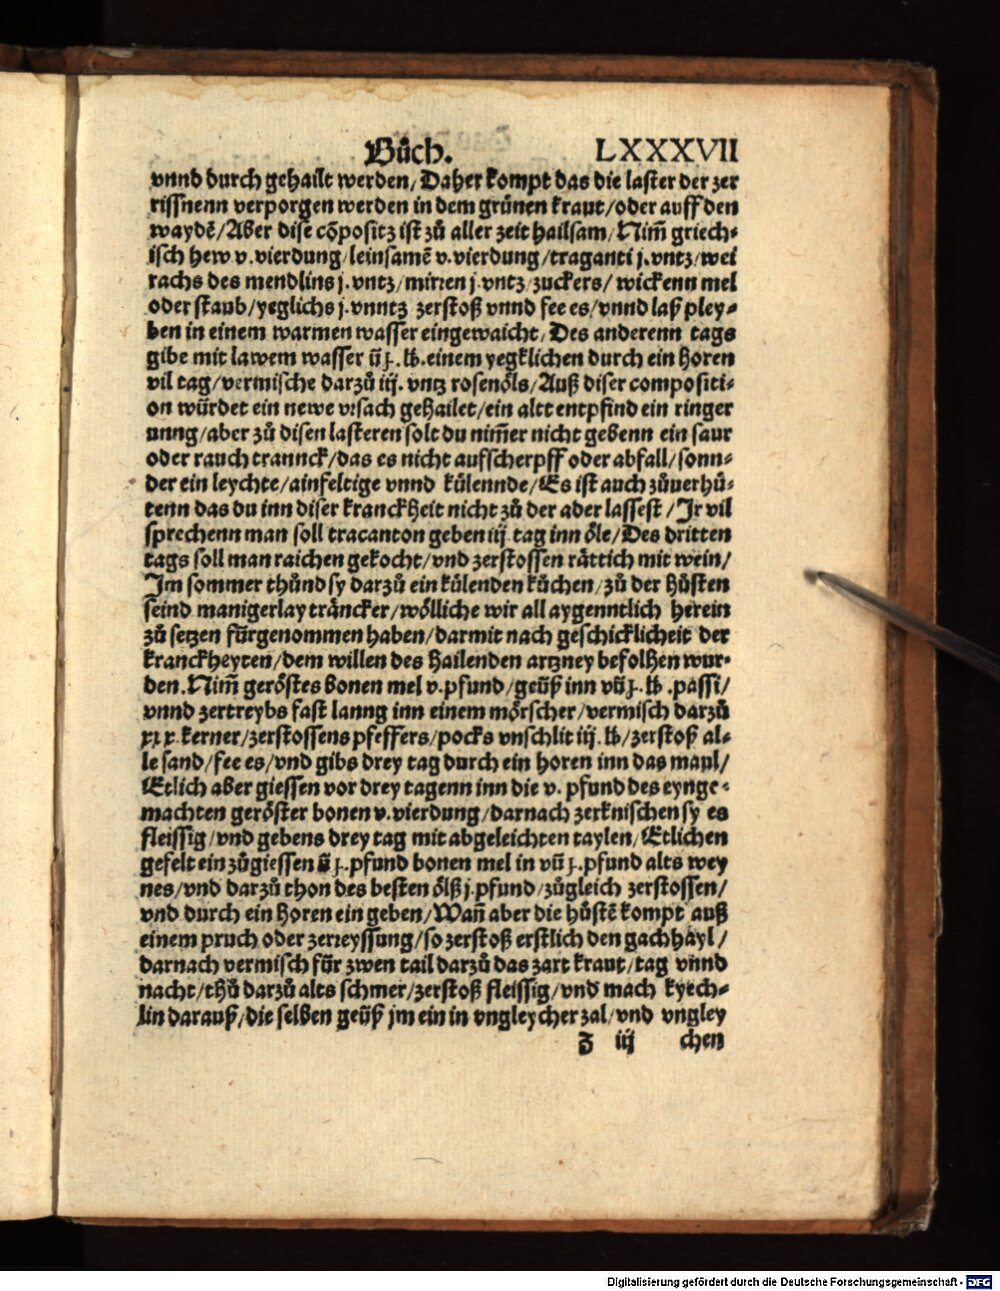 Bůch. LXXXVII
vnnd durch gehailt werden/ Daher kompt das die laster der zer
rissnenn verporgen werden in dem grünen kraut/oder auff den
waydē/Aber dise cōpositz ist zů aller zeit hailsam/Nim̄ griech⸗
isch hew v.vierdung/leinsamē v.vierdung/traganti j.vntz/wei
rachs des mendlins j.vntz/mirren j.vntz/zuckers/ wickenn mel
oder staub/yeglichs j.vnntz zerstoß vnnd see es/vnnd laß pley⸗
ben in einem warmen wasser eingewaicht/Des anderenn tags
gibe mit lawem wasser ij ꝭ. lb. einem yegklichen durch ein horen
vil tag/vermische darzů iij. vntz rosenöls/Auß diser compositi⸗
on würdet ein newe vrsach gehailet/ein altt entpfind ein ringer
unng/aber zů disen lasteren solt du nim̄er nicht gebenn ein saur
oder rauch trannck/das es nicht aufscherpff oder abfall/sonn⸗
der ein leychte/ainfeltige vnnd külennde/Es ist auch zůuerhü⸗
tenn das du inn diser kranckheit nicht zů der ader lassest/Ir vil
sprechenn man soll tracanton geben iij tag inn öle/Des dritten
tags soll man raichen gekocht/vnd zerstossen rättich mit wein/
Im sommer thůnd sy darzů ein külenden kůchen/zů der hůsten
seind manigerlay träncker/wölliche wir all aygenntlich herein
zů setzen fürgenommen haben/darmit nach geschicklicheit der
kranckheyten/dem willen des hailenden artzney befolhen wur⸗
den.Nim̄ geröstes bonen mel v.pfund/geüß inn vij ꝭ. lb .passi/
vnnd zertreybs fast lanng inn einem mörscher/vermisch darzů
xxx.kerner/zerstossens pfeffers/pocks vnschlit iij.lb/zerstoß al⸗
le sand/see es/vnd gibs drey tag durch ein horen inn das maul/
Etlich aber giessen vor drey tagenn inn die v. pfund des eynge⸗
machten geröster bonen v.vierdung/darnach zerknischen sy es
fleissig/vnd gebens drey tag mit abgeleichten taylen/Etlichen
gefelt ein zůgiessen ij ꝭ.pfund bonen mel in vij ꝭ.pfund alts wey
nes/vnd darzů thon des besten ölß j.pfund/zůgleich zerstossen/
vnd durch ein horen ein geben/Wañ aber die hůstē kompt auß
einem pruch oder zerreyssung/so zerstoß erstlich den gachhayl/
darnach vermisch für zwen tail darzů das zart kraut/tag vnnd
nacht/thů darzů alts schmer/zerstoß fleissig/vnd mach kyech⸗
lin darauß/die selben geüß jm ein in vngleycher zal/vnd vngley
z iij chen
Digitalisierung gefördert durch die Deutsche Forschungsgemeinschaft - DFG